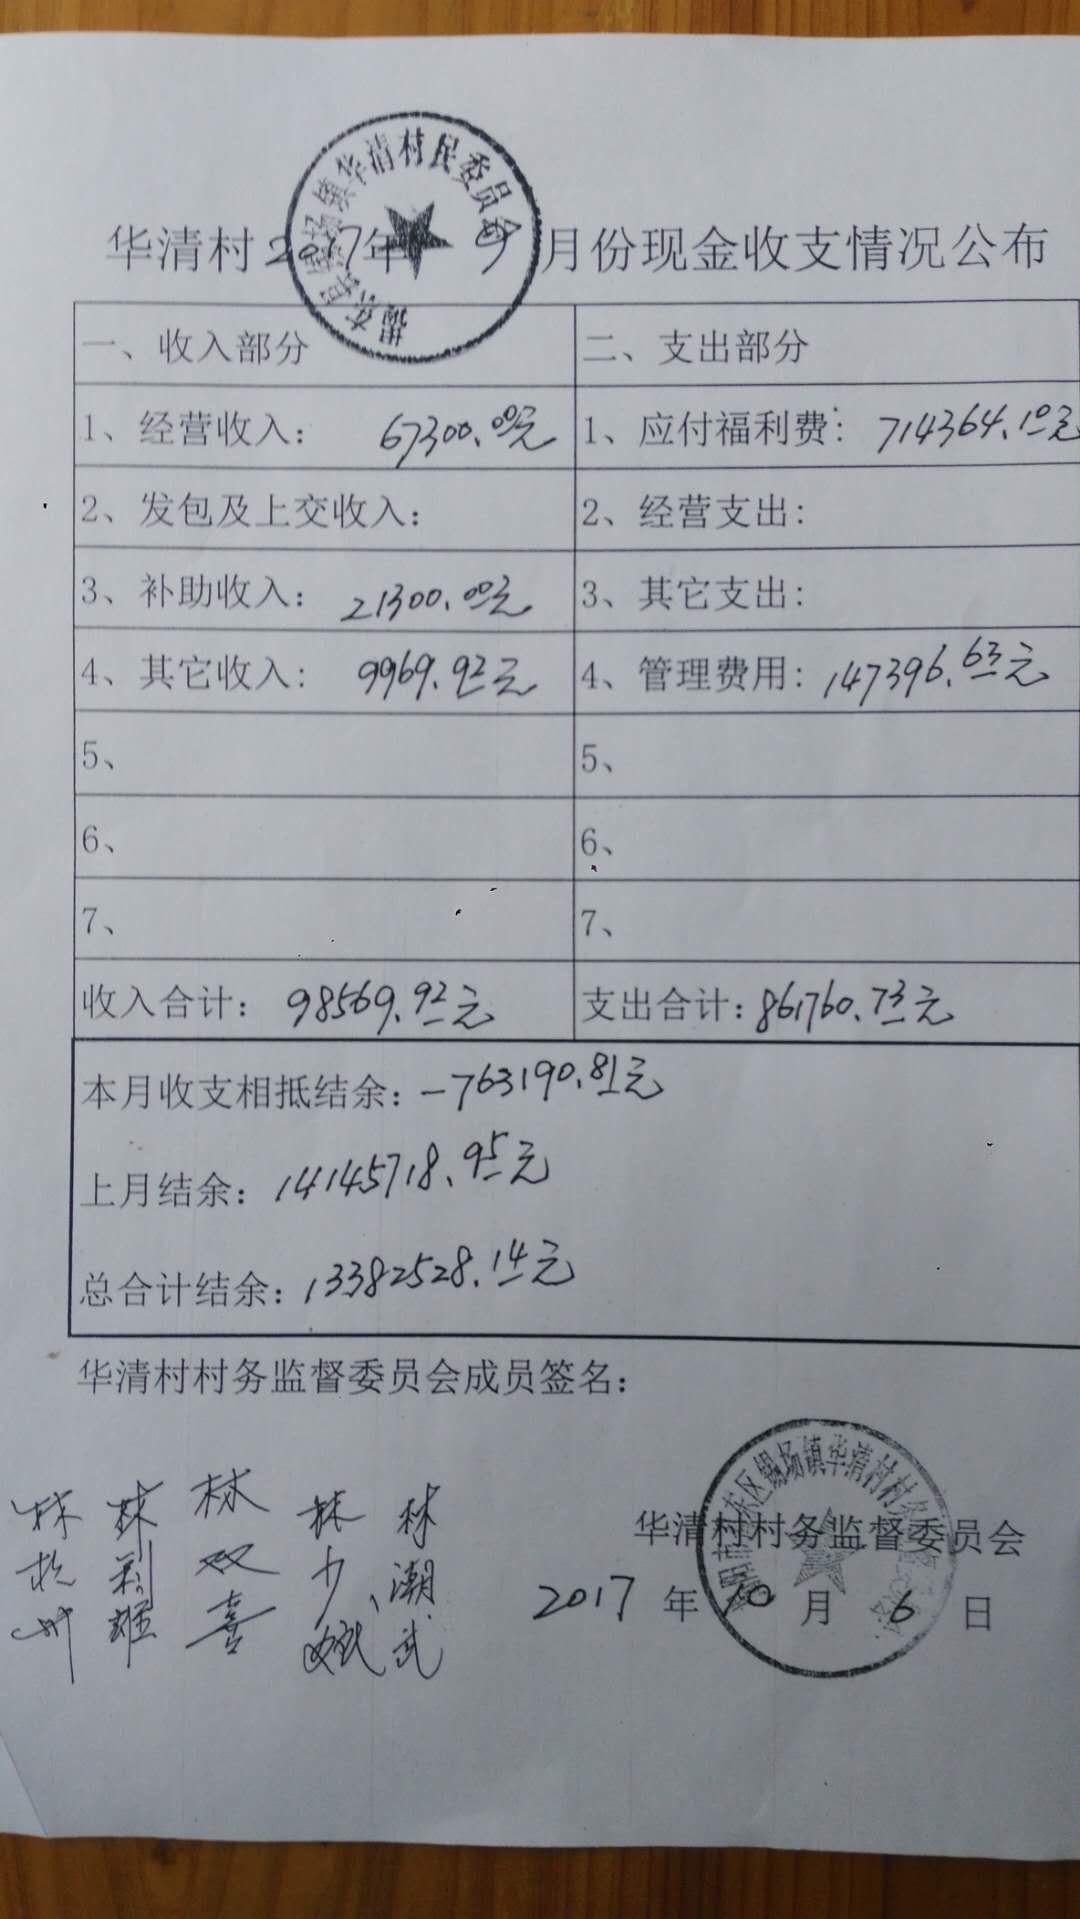 华清村2017年 9 月份现金收支情况公布
华清村民委员会
一、收入部分 二、支出部分
1、经营收入: 67300.00元 1、应付福利费: 714364.10元
2、发包及上交收入: 2、经营支出:
3、补助收入: 21300.00元 3、其它支出:
4、其它收入: 9969.92元 4、管理费用: 147396.63元
5、 5、
6、 6、
7、 7、
收入合计: 98569.92元 支出合计: 861760.73元
本月收支相抵结余: -763190.81元
上月结余: 14145718.95元
总合计结余: 13382528.14元
华清村村务监督委员会成员签名:
林双喜
林潮武
华清村村务监督委员会
2017 年 10 月 6 日
东区锡场镇华清村村务